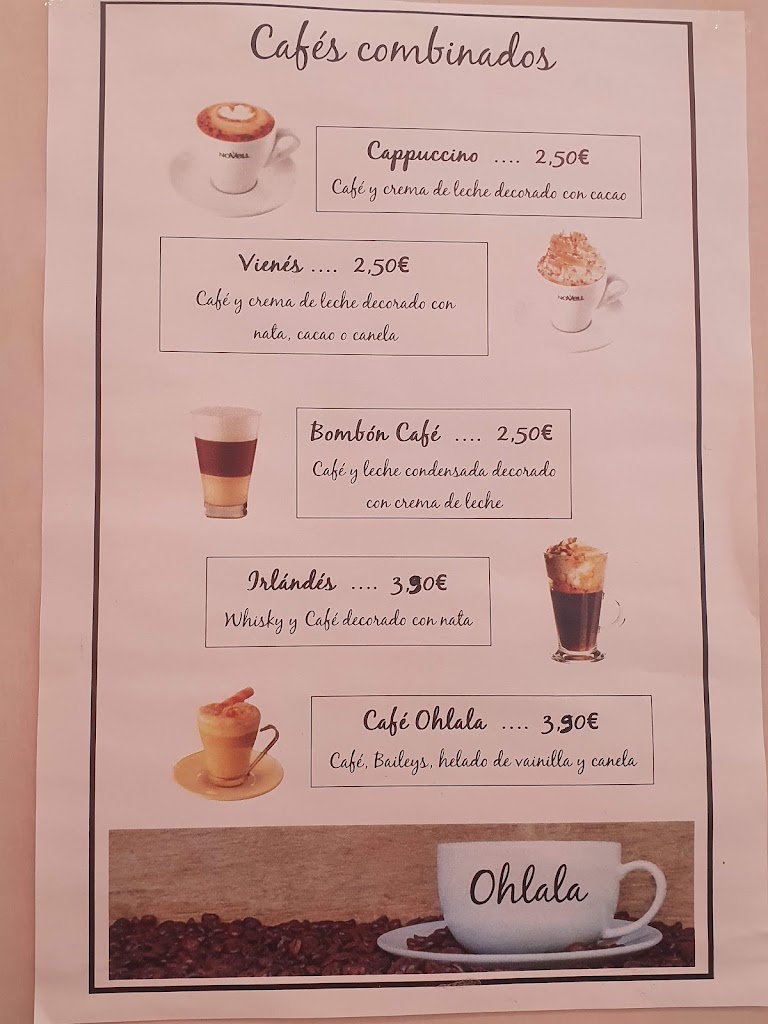 Cafés combinados
NOVELL
Cappuccino .... 2,50€
Café y crema de leche decorado con cacao
Vienés .... 2,50€
Café y crema de leche decorado con
nata, cacao o canela
NOVELL
Bombón Café .... 2,50€
Café y leche condensada decorado
con crema de leche
Irlándés .... 3,90€
Whisky y Café decorado con nata
Café Ohlala .... 3,90€
Café, Baileys, helado de vainilla y canela
Ohlala